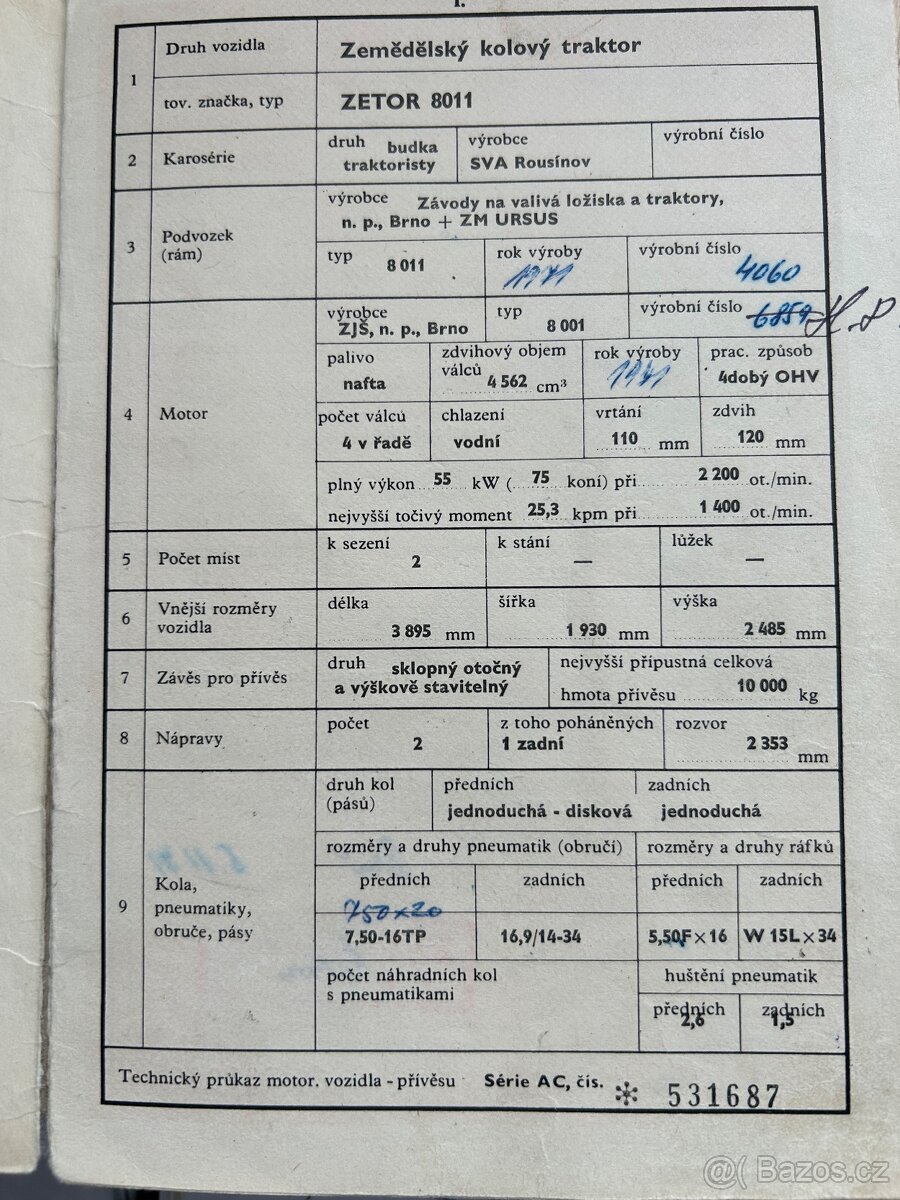 I.
1 Druh vozidla Zemědělský kolový traktor
tov. značka, typ ZETOR 8011
2 Karosérie druh budka traktoristy výrobce SVA Rousínov výrobní číslo
3 Podvozek (rám) výrobce Závody na valivá ložiska a traktory,
n. p., Brno + ZM URSUS
typ 8 011 rok výroby 1971 výrobní číslo 4060
4 Motor výrobce ZJŠ, n. p., Brno typ 8 001 výrobní číslo 6859 H.P.
palivo nafta zdvihový objem válců 4 562 cm³ rok výroby 1971 prac. způsob 4dobý OHV
počet válců 4 v řadě chlazení vodní vrtání 110 mm zdvih 120 mm
plný výkon 55 kW ( 75 koní) při 2 200 ot./min.
nejvyšší točivý moment 25,3 kpm při 1 400 ot./min.
5 Počet míst k sezení 2 k stání — lůžek —
6 Vnější rozměry vozidla délka 3 895 mm šířka 1 930 mm výška 2 485 mm
7 Závěs pro přívěs druh sklopný otočný a výškově stavitelný nejvyšší přípustná celková hmota přívěsu 10 000 kg
8 Nápravy počet 2 z toho poháněných 1 zadní rozvor 2 353 mm
9 Kola, pneumatiky, obruče, pásy
druh kol (pásů) předních jednoduchá - disková zadních jednoduchá
rozměry a druhy pneumatik (obručí) rozměry a druhy ráfků
předních zadních předních zadních
750x20
7,50-16TP 16,9/14-34 5,50F × 16 W 15L × 34
počet náhradních kol s pneumatikami huštění pneumatik
předních 2,6 zadních 1,5
Technický průkaz motor. vozidla - přívěsu Série AC, čís. * 531687
@( Bazos.cz